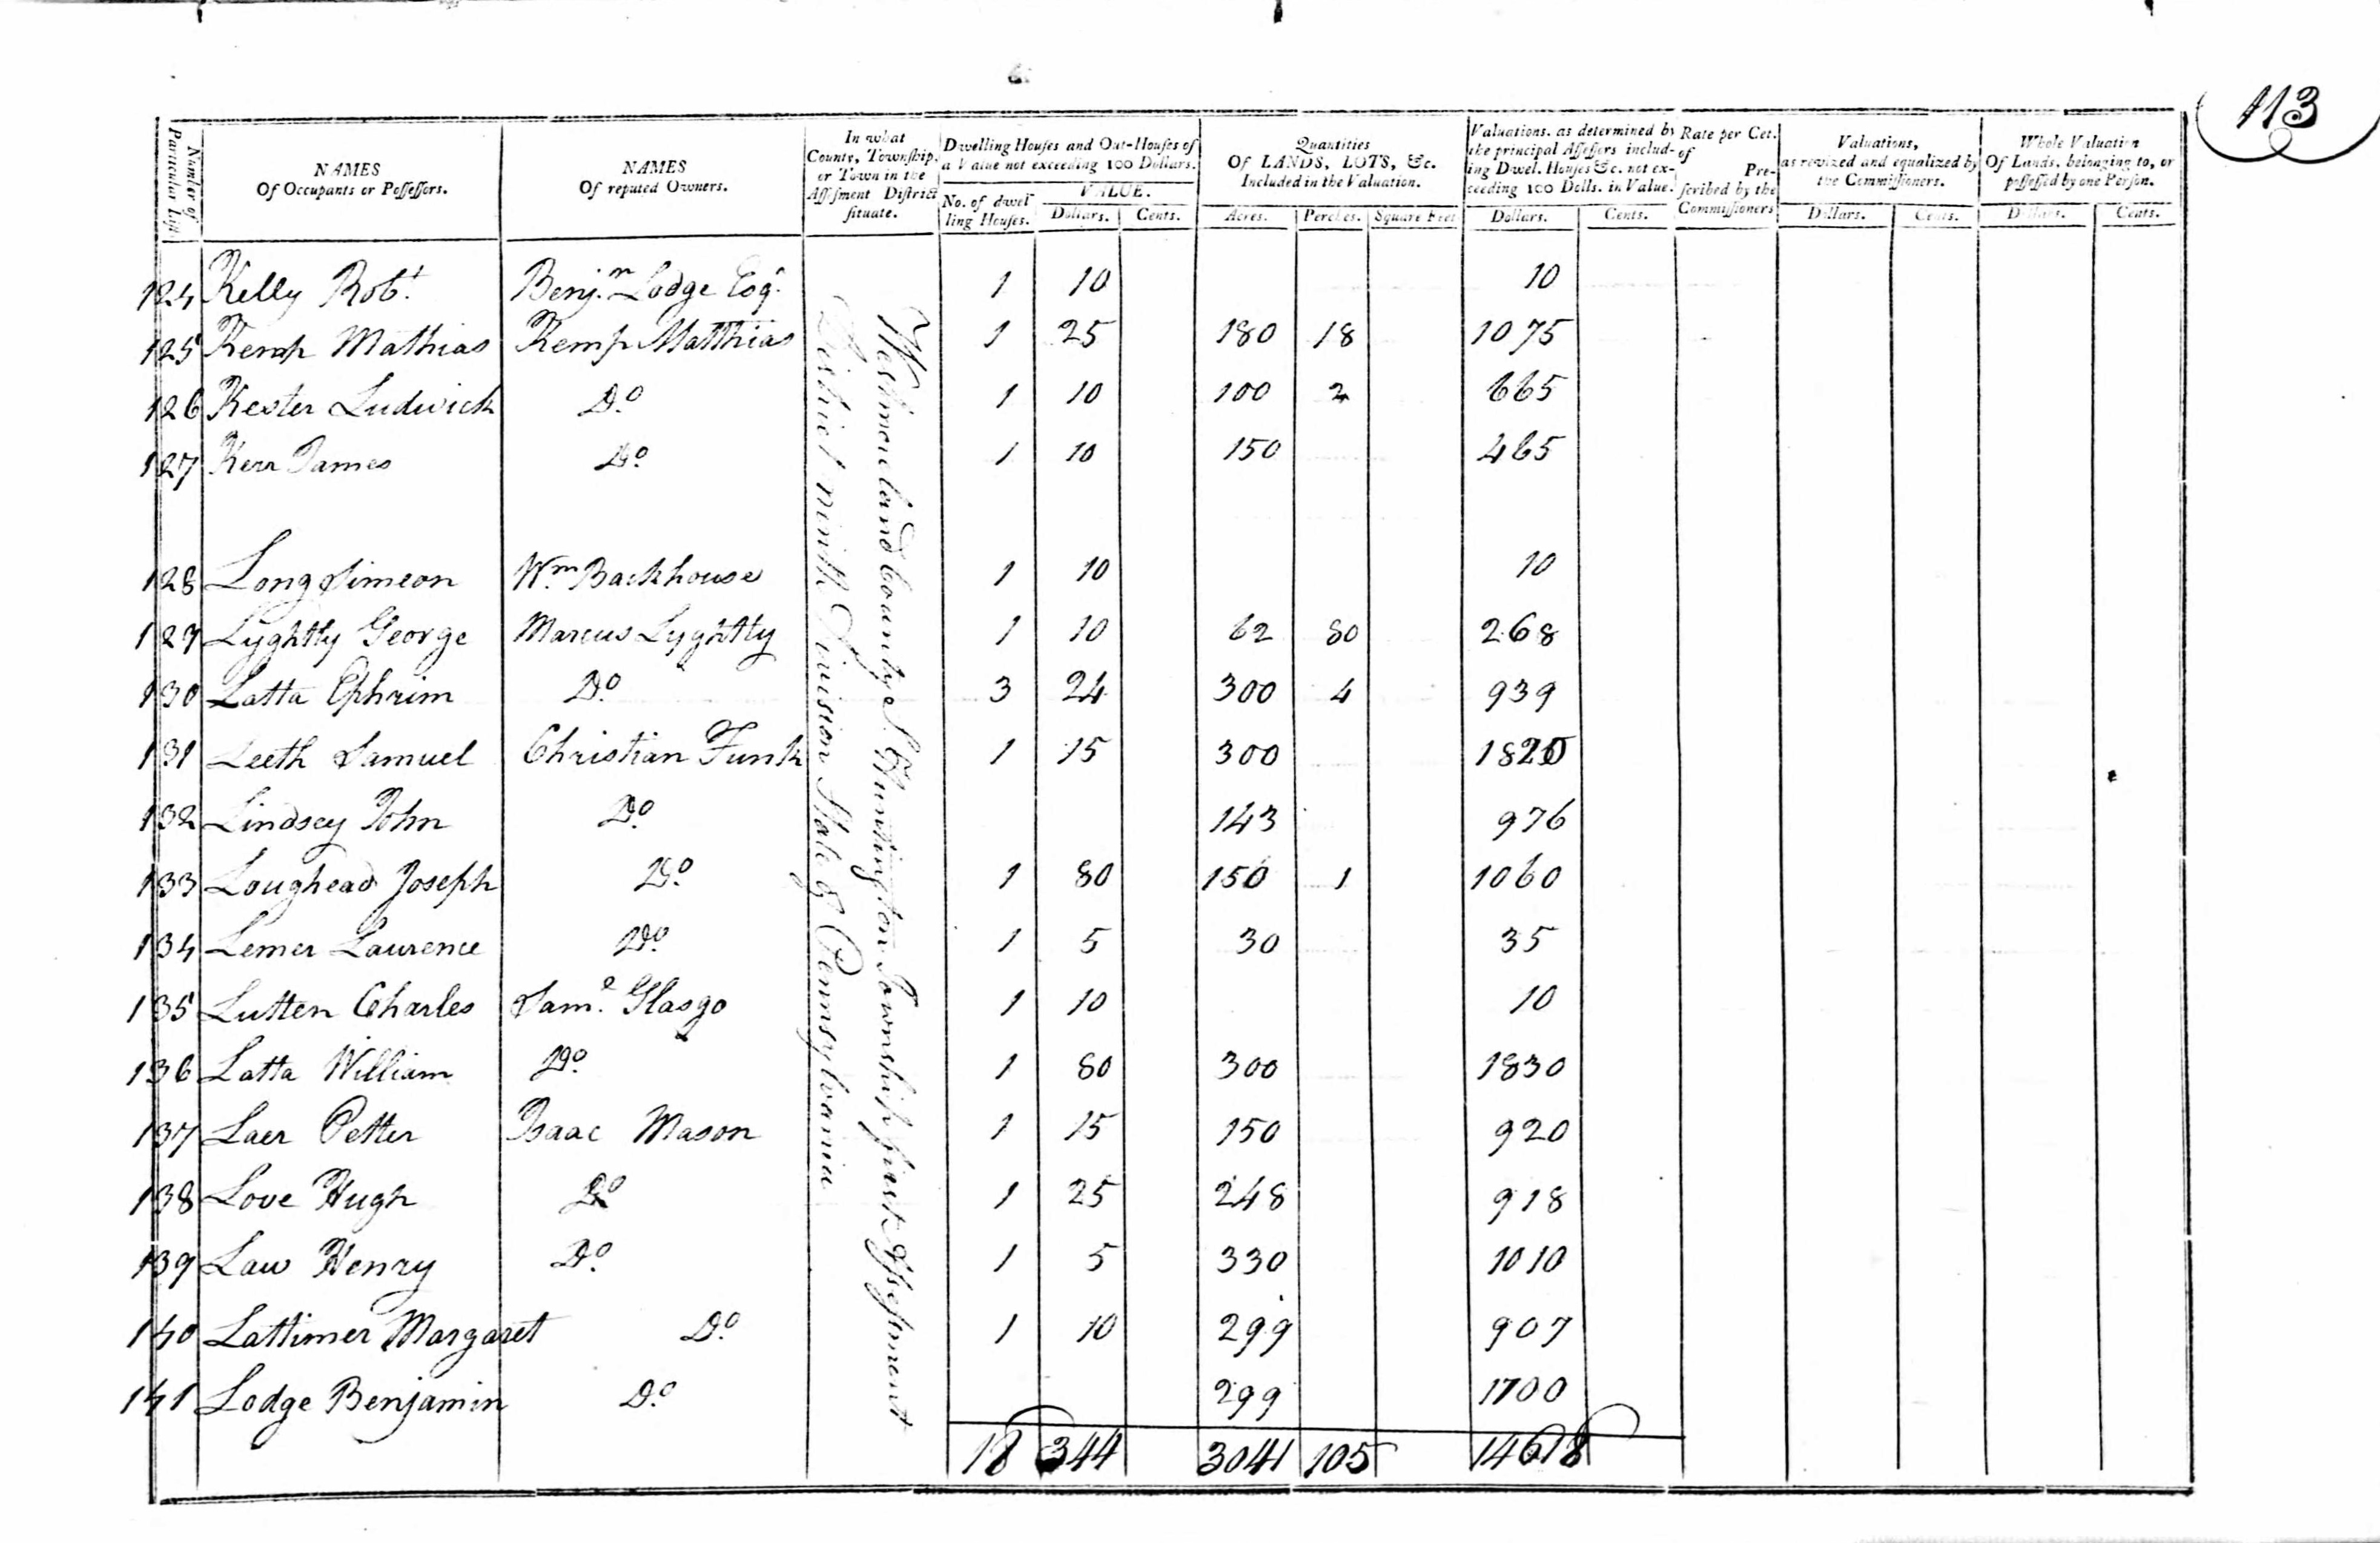 113
Number of Particular List
NAMES Of Occupants or Poſſeſſors.
NAMES Of reputed Owners.
In what County, Township, or Town in the Aſſeſment Diſtrict ſituate.
Dwelling Houſes and Out-Houſes of a Value not exceeding 100 Dollars.
No. of dwelling Houſes.
VALUE.
Dollars. Cents.
Quantities Of LANDS, LOTS, &c. Included in the Valuation.
Acres. Perches. Square Feet
Valuations, as determined by the principal Aſſeſſors including Dwel. Houſes &c. not exceeding 100 Dolls. in Value.
Dollars. Cents.
Rate per Cet. of Preſcribed by the Commiſſioners
Valuations, as revized and equalized by the Commiſſioners.
Dollars. Cents.
Whole Valuation Of Lands, belonging to, or poſſeſſed by one Perſon.
Dollars. Cents.
124 Kelly Robt. Benjn. Lodge Esqr. 1 10 10
125 Kemp Mathias Kemp Matthias 1 25 180 18 1075
126 Kester Ludwick Do. 1 10 100 2 665
127 Kerr James Do. 1 10 150 465
128 Long Simeon Wm. Backhouse 1 10 10
129 Lyghtly George Marcus Lyghtly 1 10 62 80 268
130 Latta Ephrim Do. 3 24 300 4 939
131 Leeth Samuel Christian Funk 1 15 300
132 Lindsey John Do. 143 976
133 Loughead Joseph Do. 1 80 150 1 1060
134 Lemer Laurence Do. 1 5 30 35
135 Lutten Charles Saml. Glasgo 1 10 10
136 Latta William Do. 1 80 300 1830
137 Laer Petter Isaac Mason 1 15 150 920
138 Love Hugh Do 1 25 248 918
139 Law Henry Do. 1 5 330 1010
140 Lattimer Margaret Do. 1 10 299 907
141 Lodge Benjamin Do. 299 1700
18 344 3041 105 14618
Westmoreland County Huntington Township first Aſseſsment
District ninth Division State of Pennsylvania